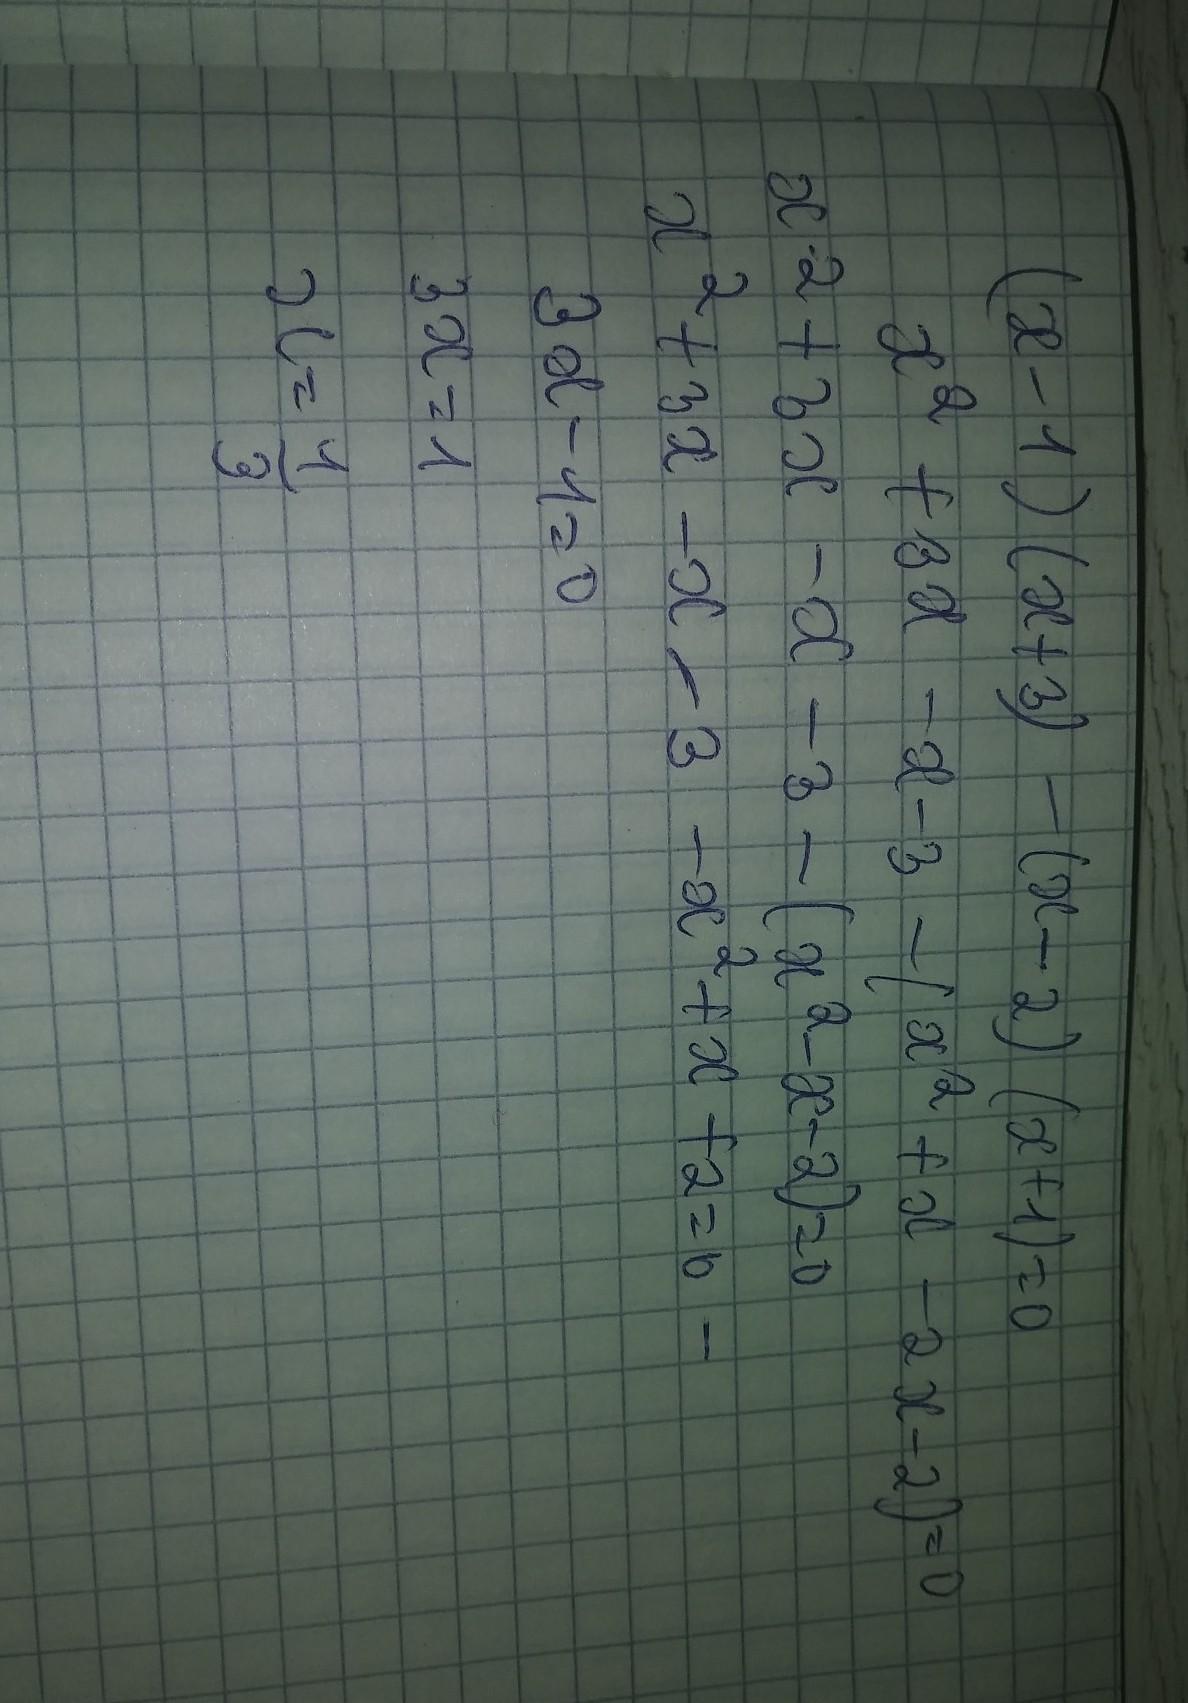 (x-1)(x+3)-(x-2)(x+1)=0
x²+3x-x-3-(x²+x-2x-2)=0
x2+3x-x-3-(x²-x-2)=0
x²+3x-x-3-x²+x+2=0-
3x-1=0
3x=1
x=1/3